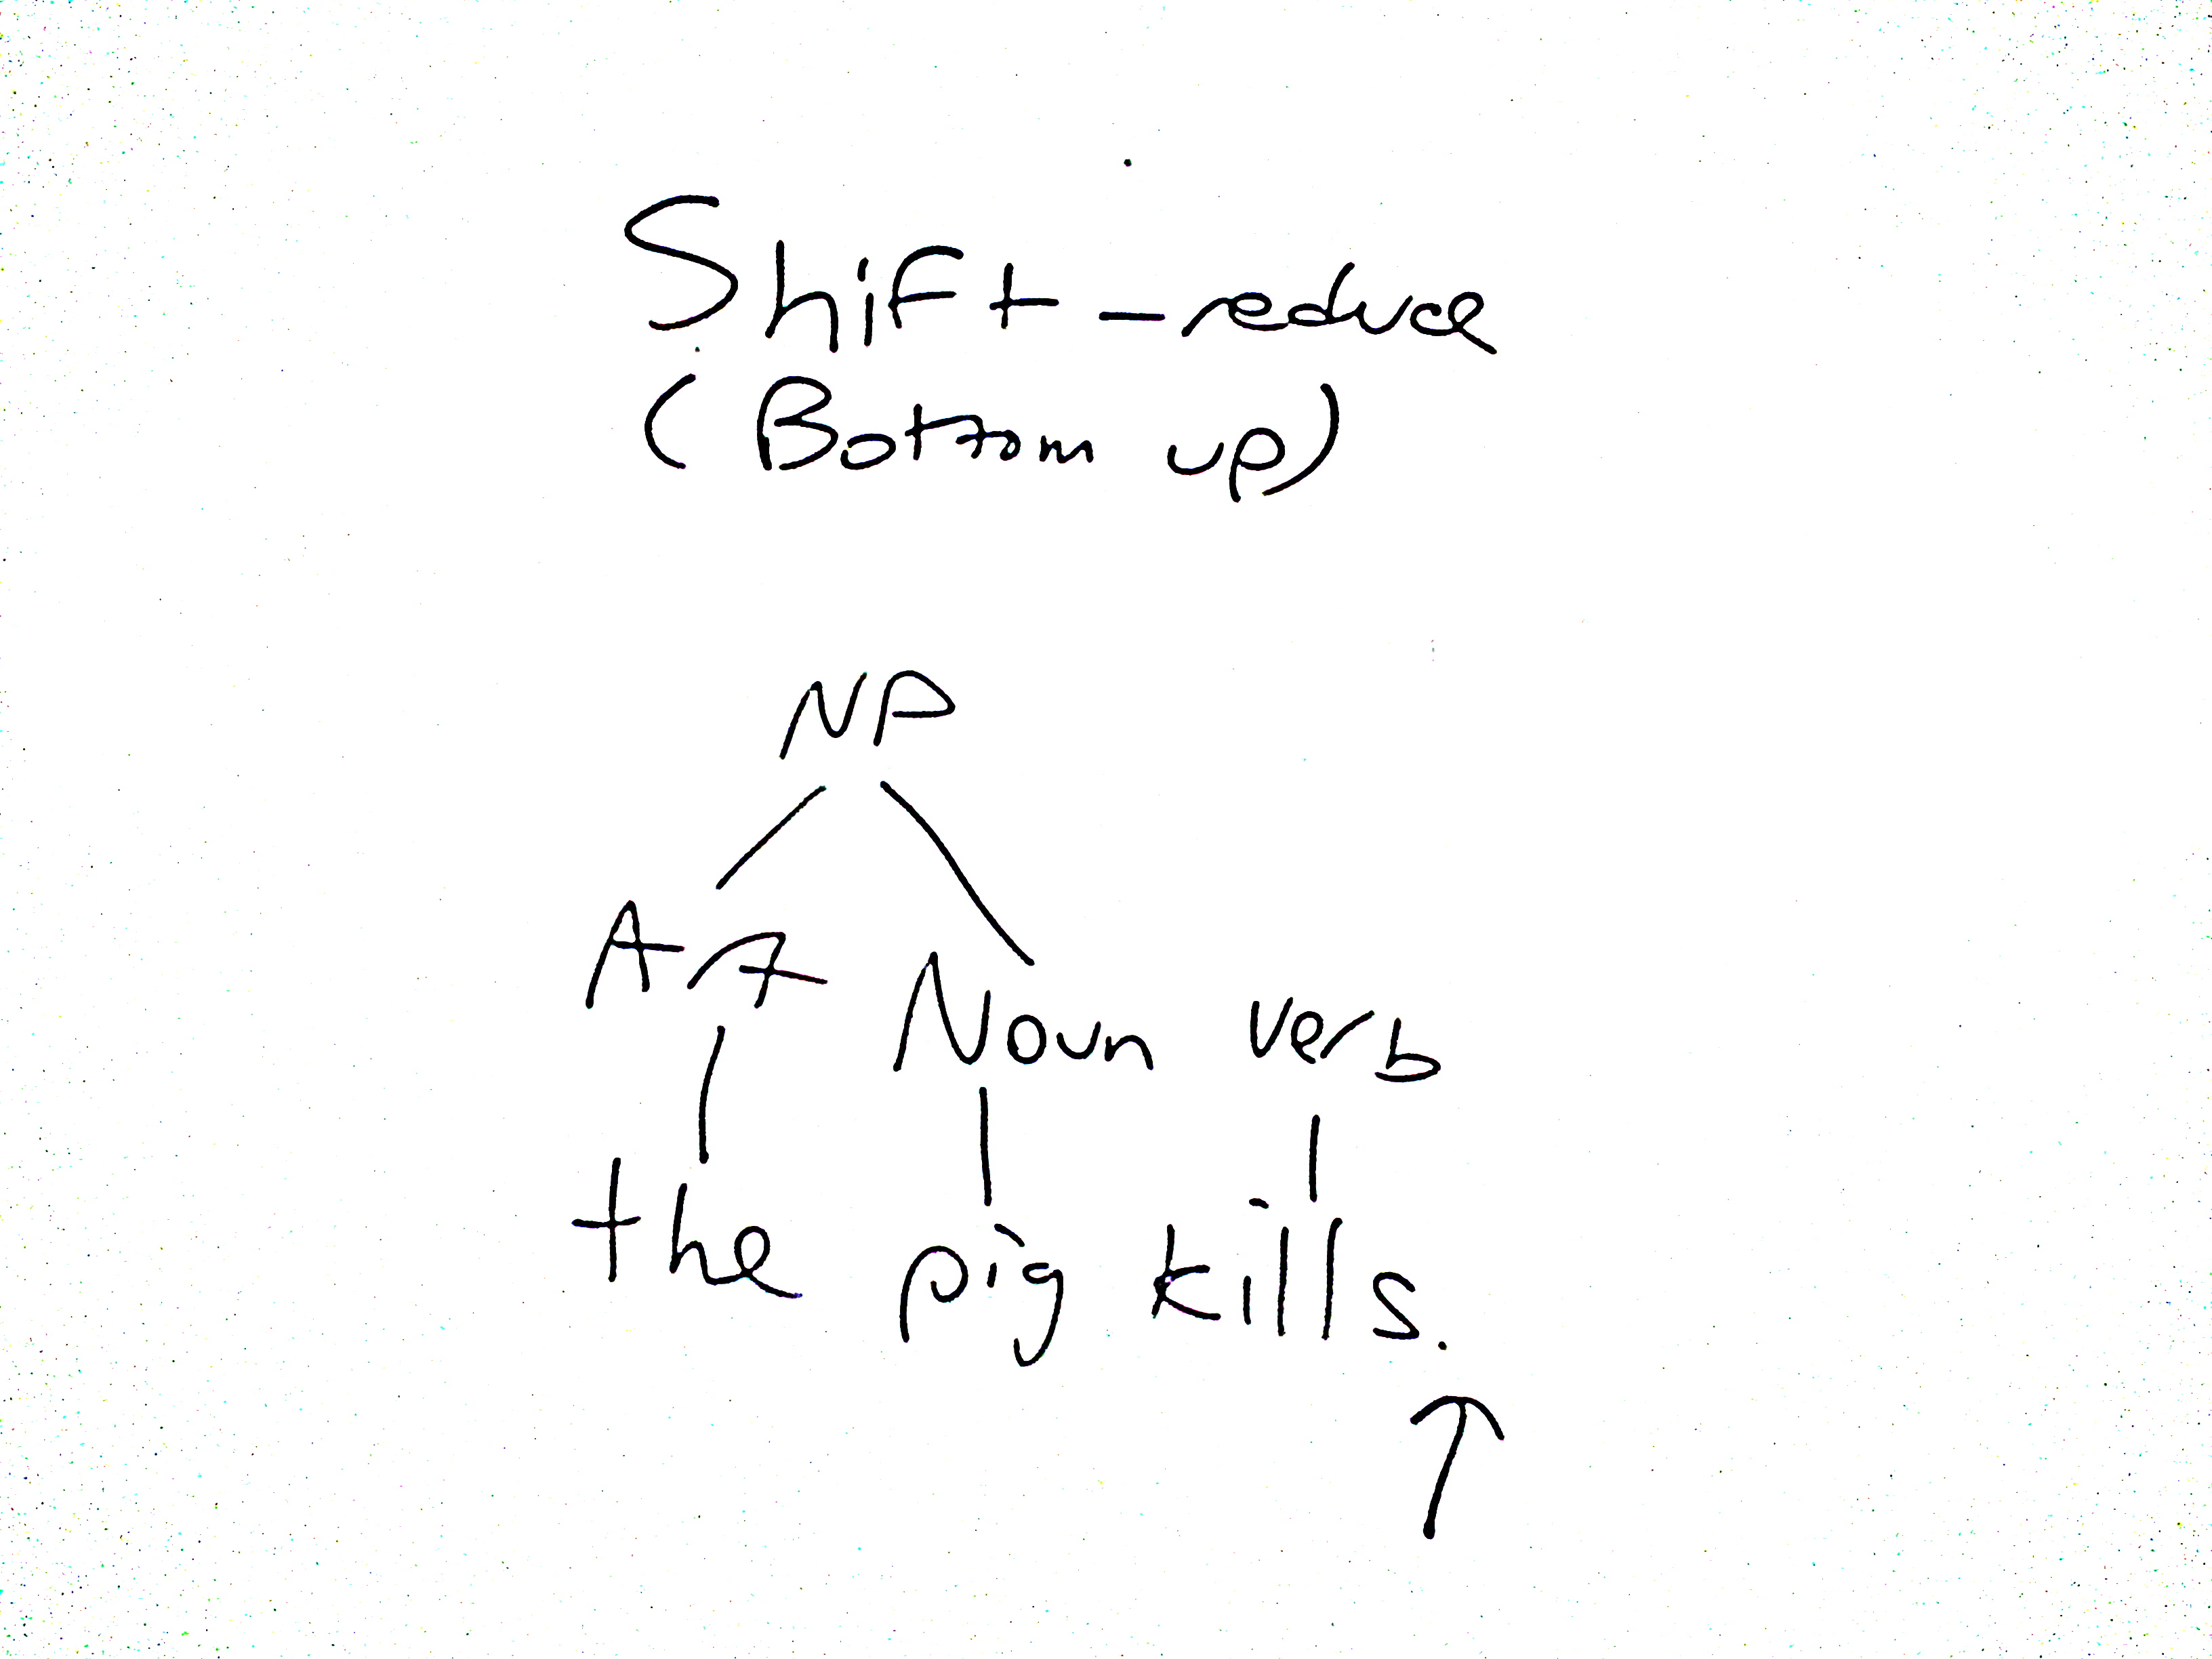 Shift-reduce
(Bottom up)
NP
Art Noun verb
the pig kills.